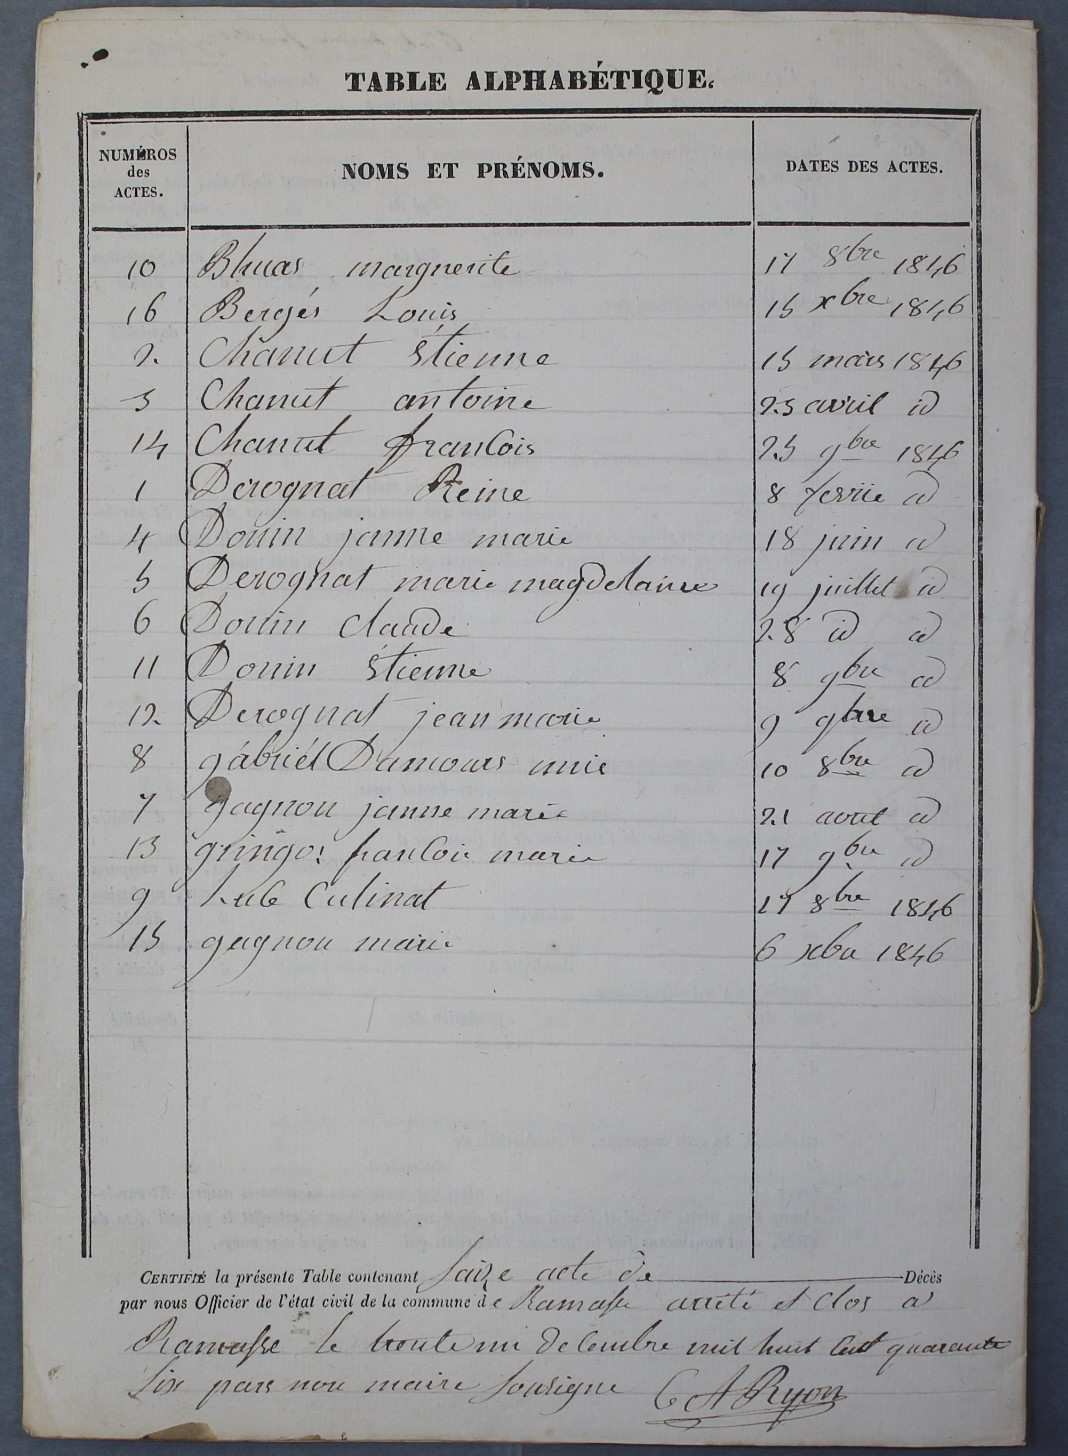 TABLE ALPHABÉTIQUE.
NUMÉROS des ACTES. NOMS ET PRÉNOMS. DATES DES ACTES.
10 Bluas marguerite 17 8bre 1846
16 Bergés Louis 15 xbre 1846
2. Chanut Étienne 15 mars 1846
3 Chanut antoine 25 avril id
14 Chanut francois 25 9bre 1846
1 Derognat Reine 8 fevrie id
4 Douin janne marie 18 juin id
5 Derognat marie magdelaine 19 juillet id
6 Douin claude 28 id id
11 Douin Étienne 8 9bre id
12. Derognat jean marie 9 9bre id
8 gábriél Damours 10 8bre id
7 gagnou janne marie 21 id
13 francois marie 17 9bre id
9 17 8bre 1846
15 gagnou marie 6 xbre 1846
CERTIFIÉ la présente Table contenant Saize acte de Décès
par nous Officier de l'état civil de la commune de Ramasse arrêté et clos a
Ramasse le trente un decembre mil huit cent quarante
Six pars nou maire Sousigne C A Ryon